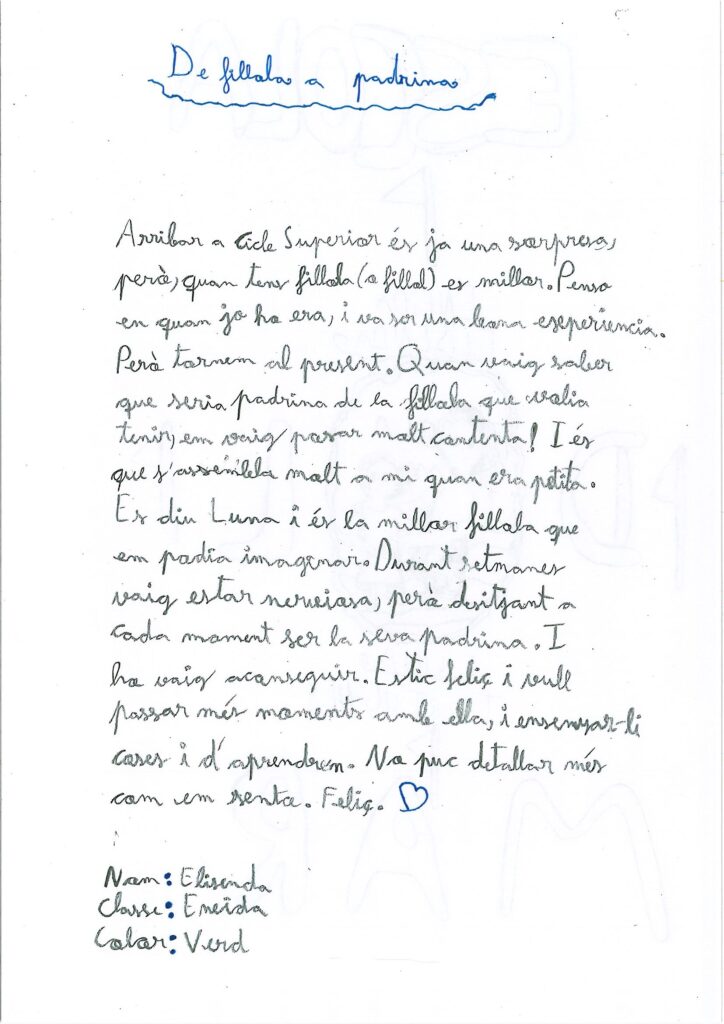 De fillola a padrina
Arribar a Cicle Superior és ja una sorpresa,
però, quan tens fillola (o fillol) es millor. Penso
en quan jo ho era, i va ser una bona eseperiencia.
Però tornem al present. Quan vaig saber
que seria padrina de la fillola que volia
tenir, em vaig posar molt contenta! I és
que s'assembla molt a mi quan era petita.
Es diu Luna i és la millor fillola que
em podia imaginar. Durant setmanes
vaig estar nerviosa, però desitjant a
cada moment ser la seva padrina. I
ho vaig aconseguir. Estic feliç i vull
passar més moments amb ella, i ensenyar-li
coses i d'aprendren. No puc detallar més
com em sento. Feliç. ♡
Nom: Elisenda
Classe: Eneida
Color: Verd